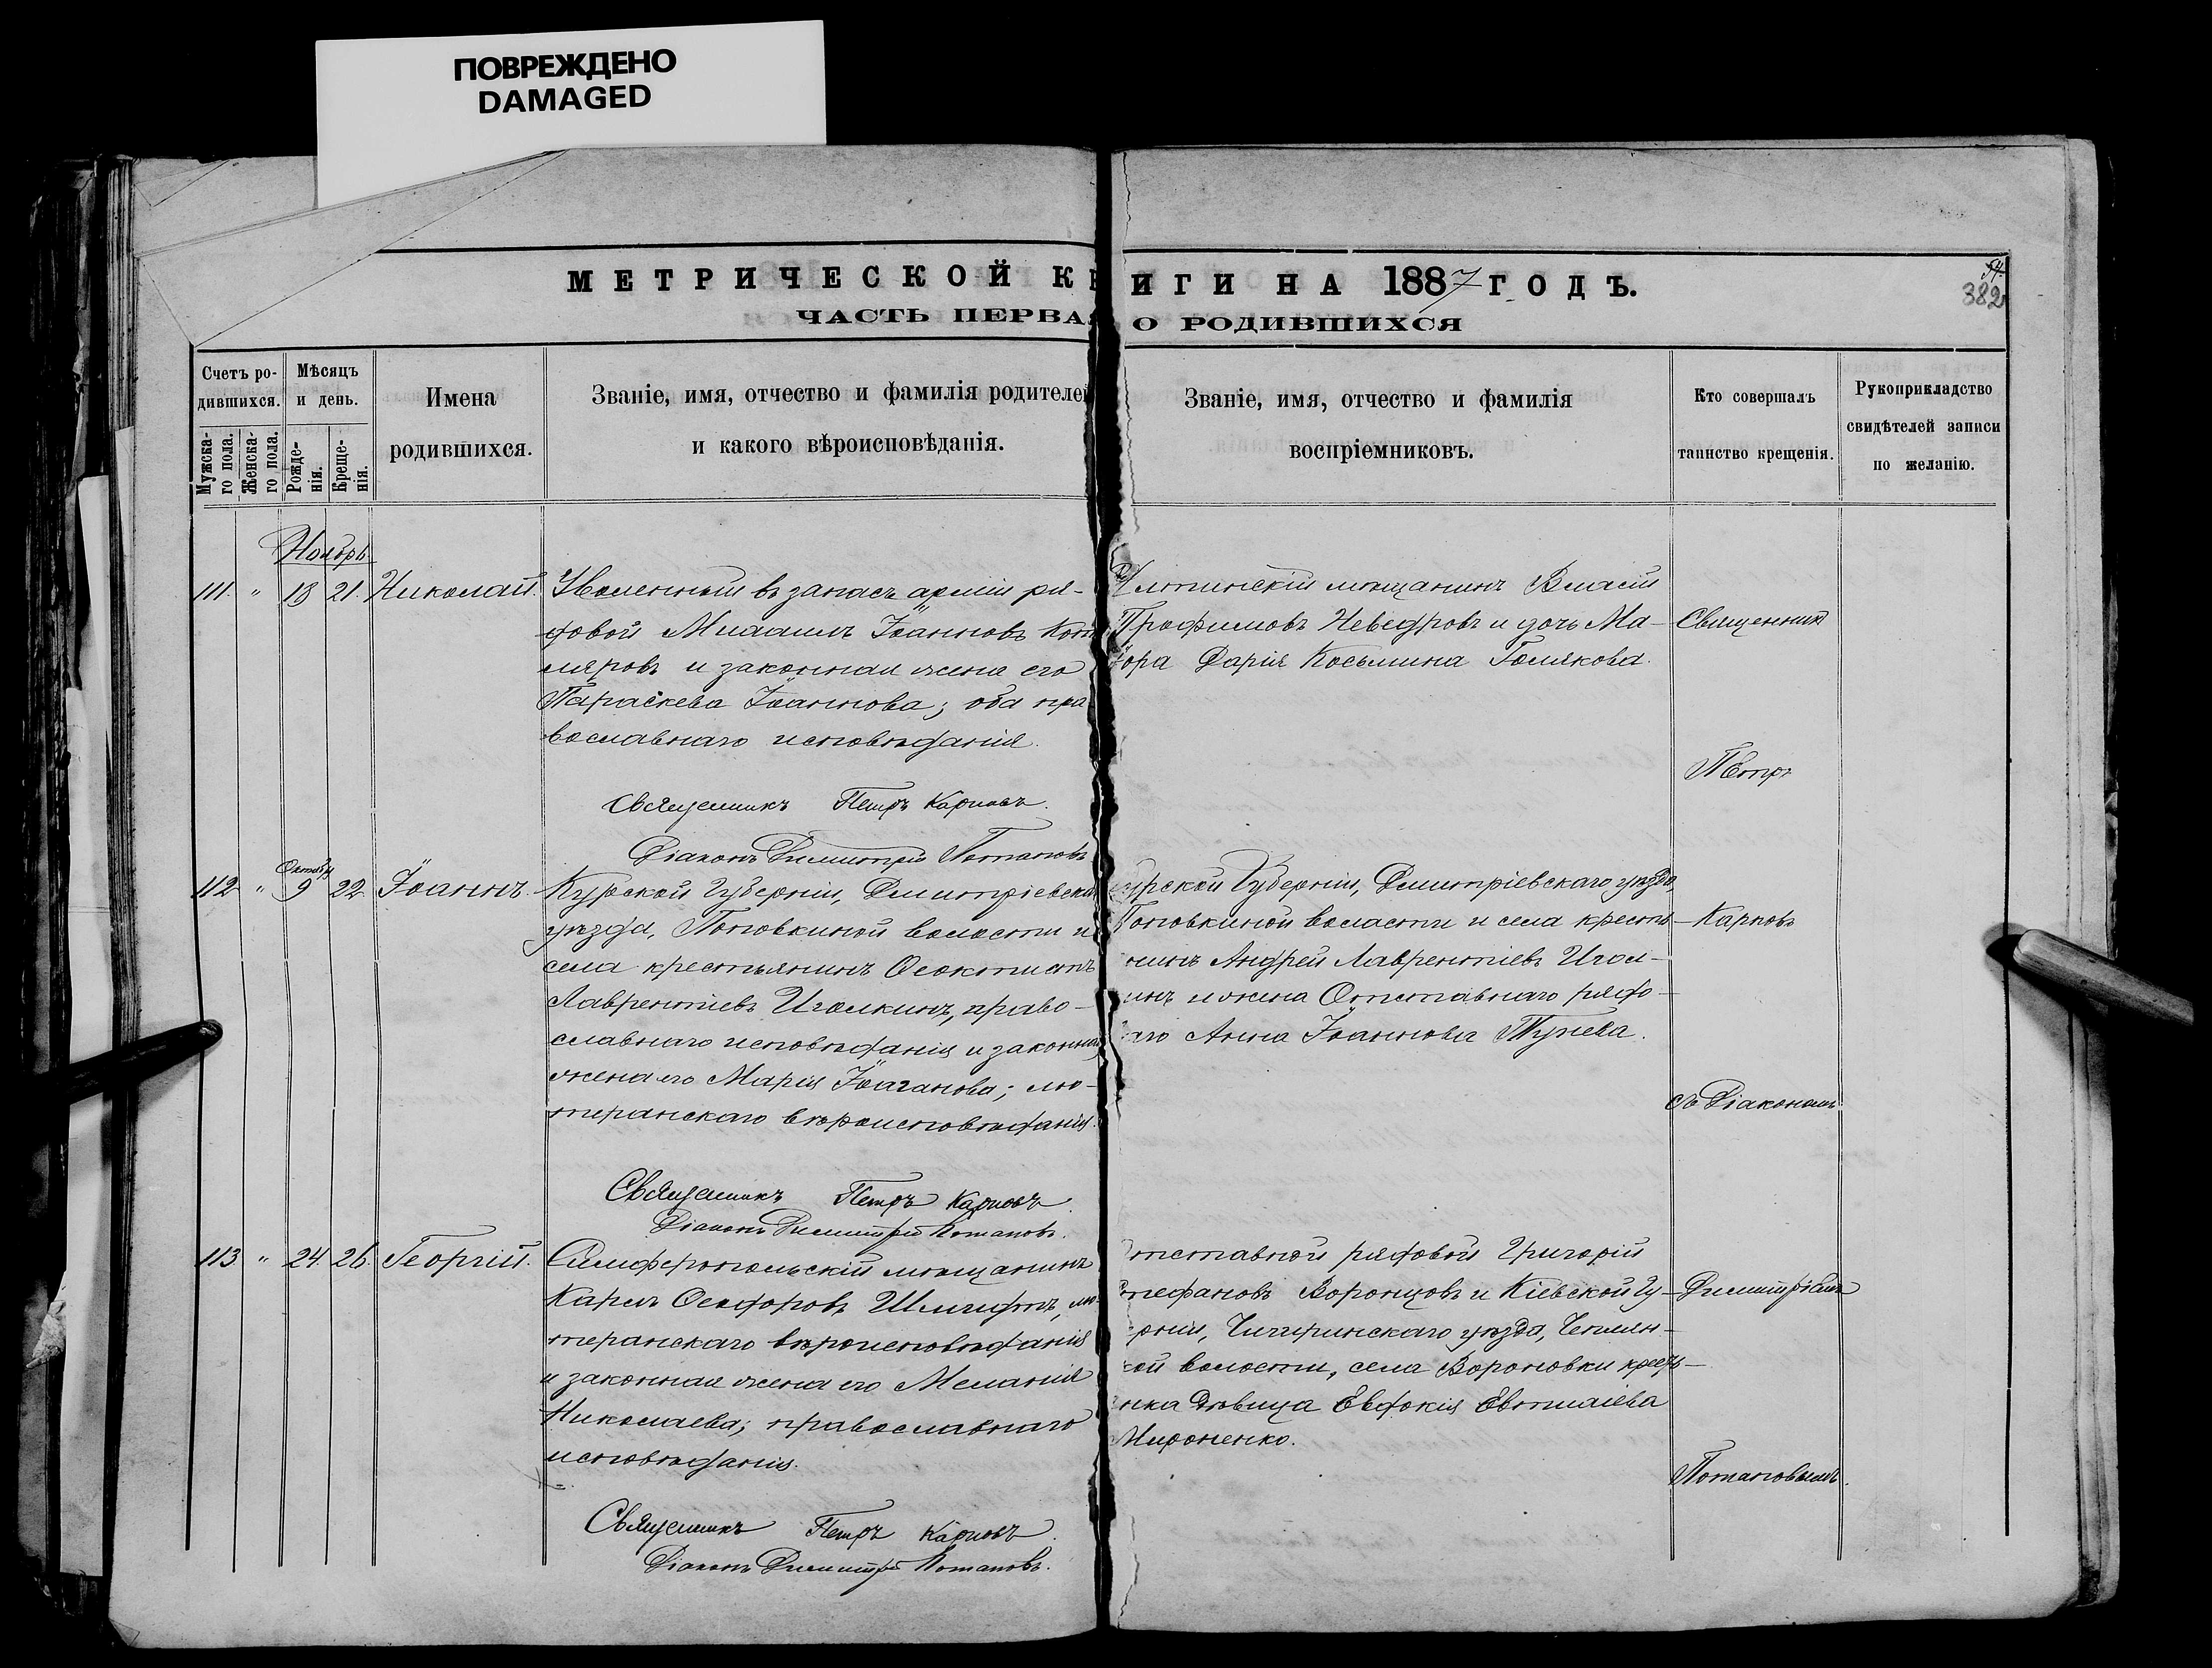 ПОВРЕЖДЕНО
DAMAGED
МЕТРИЧЕСКОЙ КНИГИ НА 1887 ГОДЪ.
54.
382
ЧАСТЬ ПЕРВАЯ О РОДИВШИХСЯ
Счетъ ро-
дившихся.
Мужска-
го пола.
Женска-
го пола.
Мѣсяцъ
и день.
Рожде-
нія.
Креще-
нія.
Имена
родившихся.
Званіе, имя, отчество и фамилія родителей
и какого вѣроисповѣданія.
Званіе, имя, отчество и фамилія
воспріемниковъ.
Кто совершалъ
таинство крещенія.
Рукоприкладство
свидѣтелей записи
по желанію.
Ноябрь
111. " 18 21. Николай.
Уволенный въ запасъ арміи ря-
довой Михаилъ Іоанновъ
ляровъ и законная жена его
Параскева Іоаннова; оба пра
вославнаго исповѣданія.
Священникъ Петръ Карповъ.
Діаконъ Димитрій Потаповъ
мѣщанинъ Власій
Трофимовъ Неведровъ и дочь Ма-
іора Дарія Косьмина Голякова.
Священникъ
Петръ
Октября
112 " 9 22. Іоаннъ.
Курской Губерніи, Дмитріевскаго
уѣзда, Поповкиной волости и
села крестьянинъ Ѳеоктистъ
Лаврентіевъ Иголкинъ, право-
славнаго исповѣданія и законная
жена его Марія; лю-
теранскаго вѣроисповѣданія.
Священникъ Петръ Карповъ.
Діаконъ Димитрій Потаповъ.
урской Губерніи, Дмитріевскаго уѣзда,
Поповкиной волости и села кресть-
нинъ Андрей Лаврентіевъ Игол-
инъ и жена Отставнаго рядо-
аго Анна Іоаннова
Карповъ
съ Діакономъ
113 " 24. 26. Георгій.
Симферопольскій мѣщанинъ
Карлъ Ѳеодоровъ лю-
теранскаго вѣроисповѣданія
и законная жена его Меланія
Николаева; православнаго
исповѣданія.
Священникъ Петръ Карповъ.
Діаконъ Димитрій Потаповъ.
тставной рядовой Григорій
тефановъ Воронцовъ и Кіевской Гу-
рніи, Чигиринскаго уѣзда,
кой волости, села Вороновки кресть-
нка дѣвица Евдокія Евтихіева
Мироненко.
Димитріемъ
Потаповымъ.